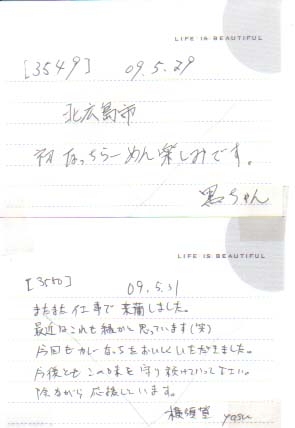 LIFE IS BEAUTIFUL
[3549] 09.5.29
北広島市
初なっちらーめん楽しみです。
黒ちゃん
LIFE IS BEAUTIFUL
[3550] 09.5.31
またまた仕事で来蘭しました。
最近はこれも縁かと思っています(笑)
今回もカレーなっちをおいしくいただきました。
今後ともこの味を守り続けていって下さい。
陰ながら応援しています。
横須賀 yasu